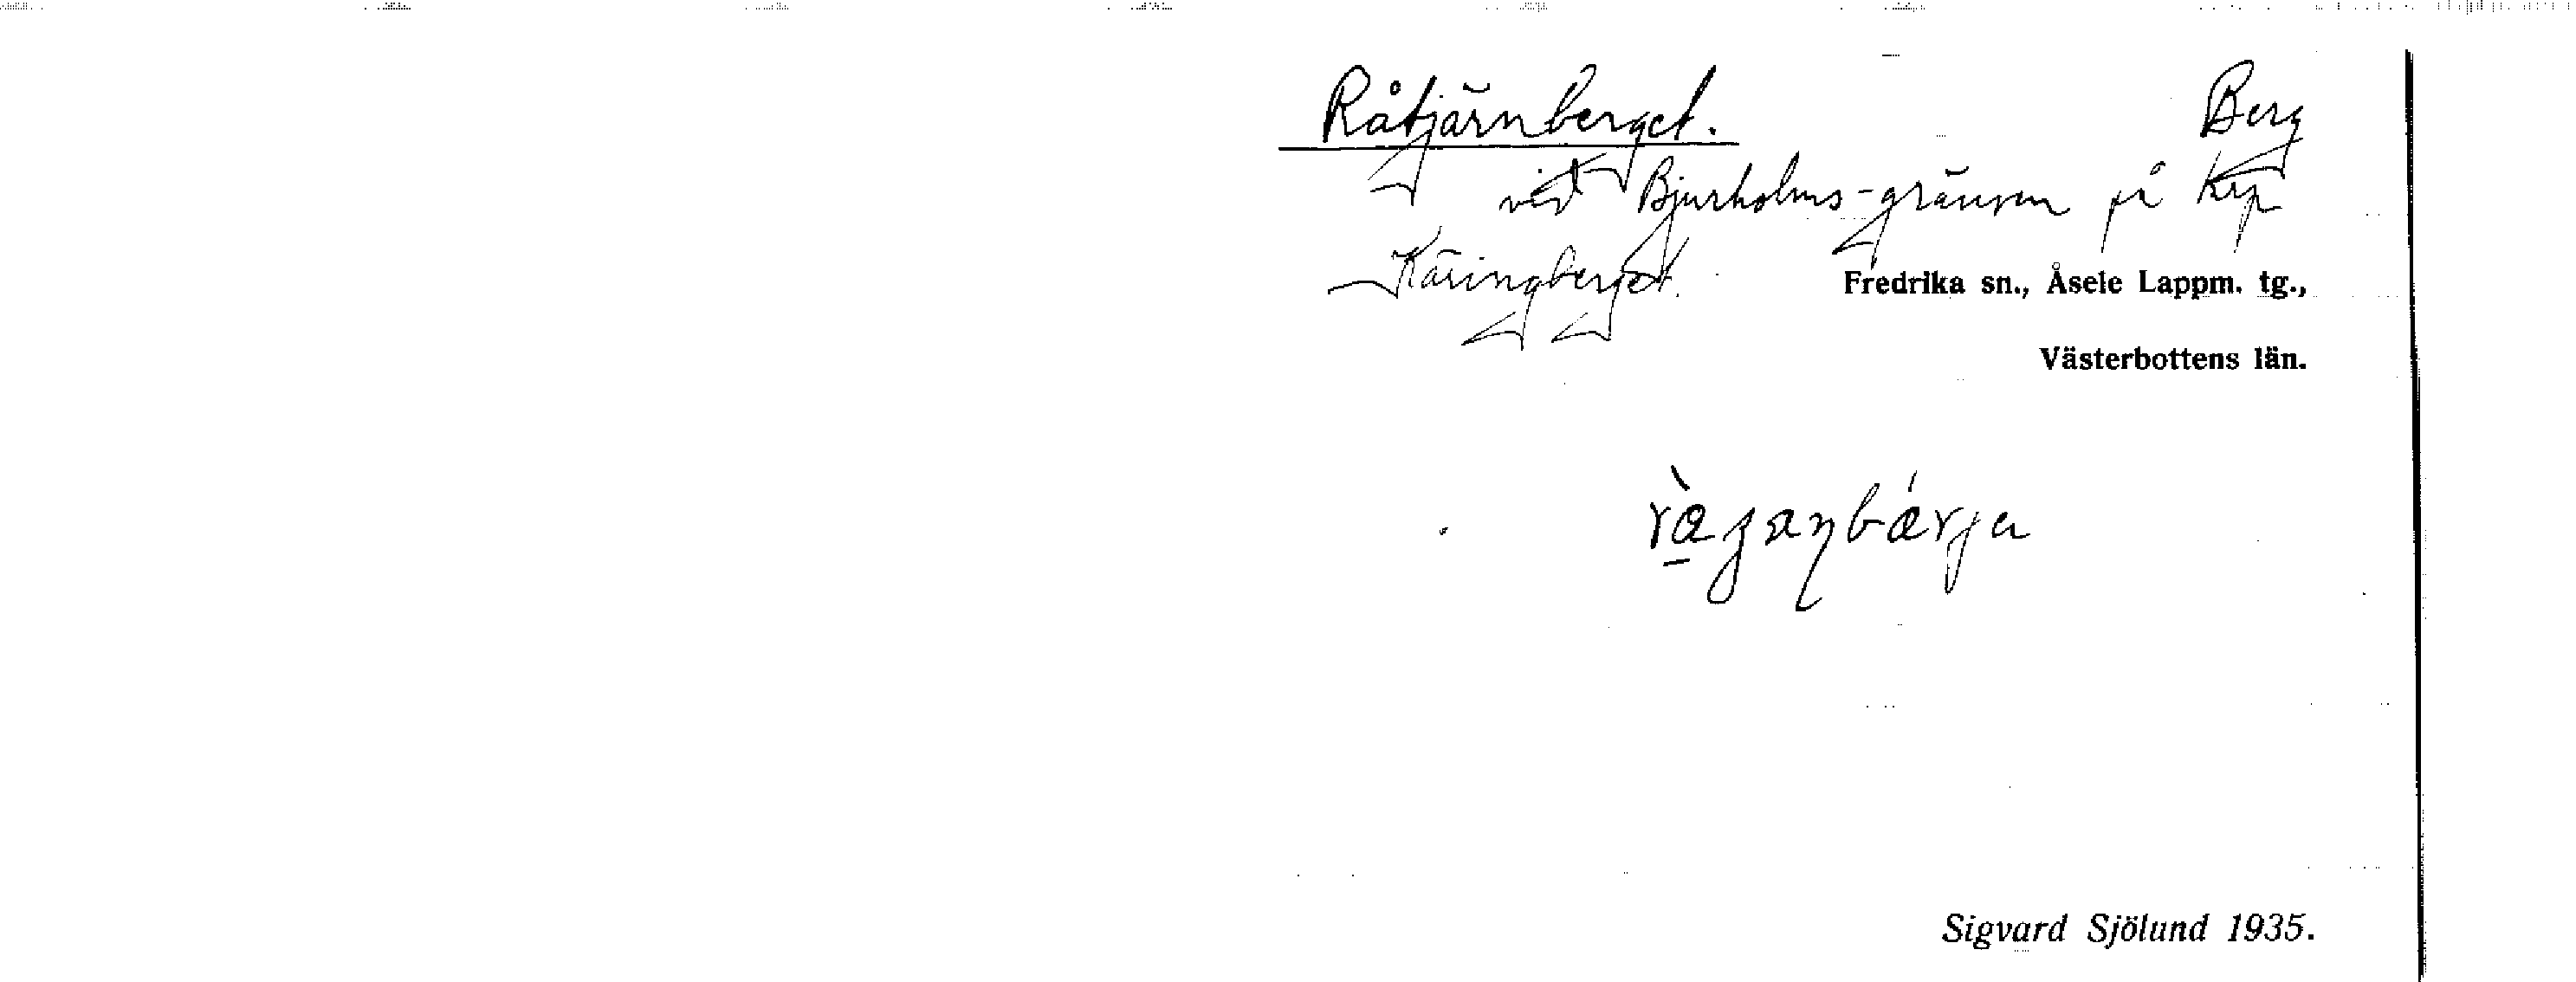 Råtjärnberget. Berg
vid Bjurholms-gränsen på Krp
Käringberget.
Fredrika sn., Åsele Lappm. tg.,
Västerbottens län.
Sigvard Sjölund 1935.